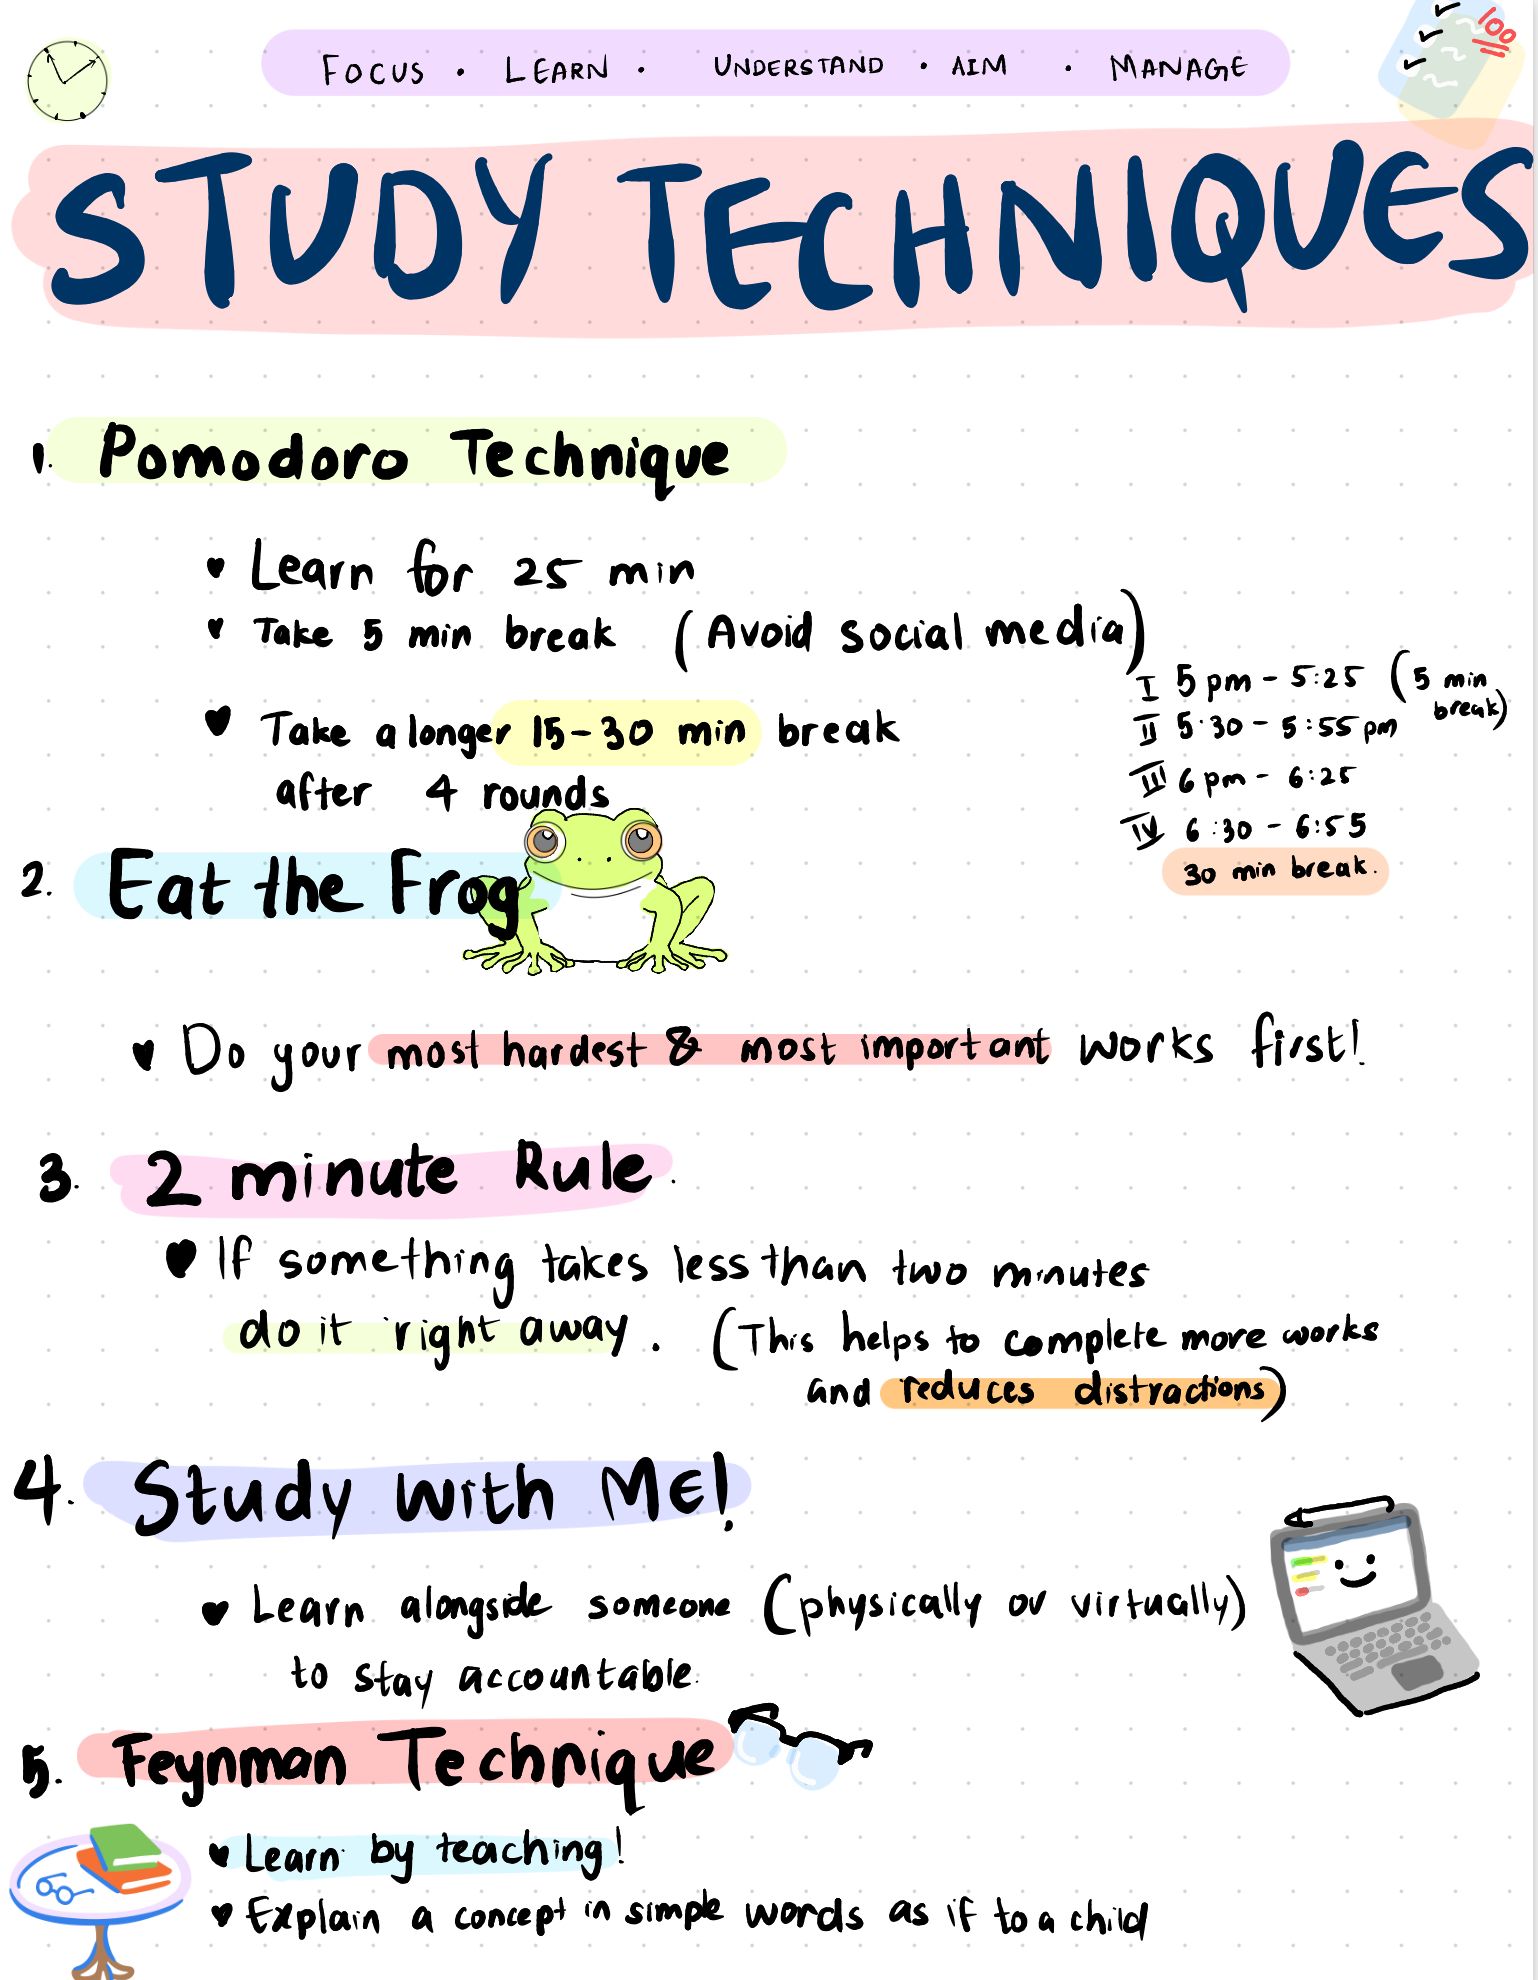 FOCUS • LEARN • UNDERSTAND • AIM • MANAGE
100
STUDY TECHNIQUES
1. Pomodoro Technique
♥ Learn for 25 min
♥ Take 5 min break (Avoid social media)
♥ Take a longer 15-30 min break
after 4 rounds
I 5 pm - 5:25 (5 min
break)
II 5:30 - 5:55 pm
III 6 pm - 6:25
IV 6:30 - 6:55
30 min break.
2. Eat the Frog
♥ Do your most hardest & most important works first!
3. 2 minute Rule.
♥ If something takes less than two minutes
do it right away. (This helps to complete more works
and reduces distractions)
4. Study with ME!
♥ Learn alongside someone (physically or virtually)
to stay accountable.
5. Feynman Technique
♥ Learn by teaching!
♥ Explain a concept in simple words as if to a child